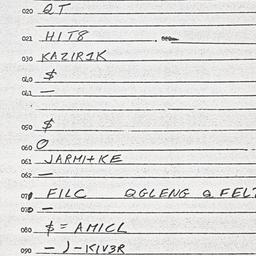 020 QT
021 HIT8
030 KAZIR1K
040 $
041 —
050 $
060 O
061 JARMI+KE
062 —
071 FILC QGLENG Q FELT
070 —
080 $ = AMICL
090 — J-KIV3R